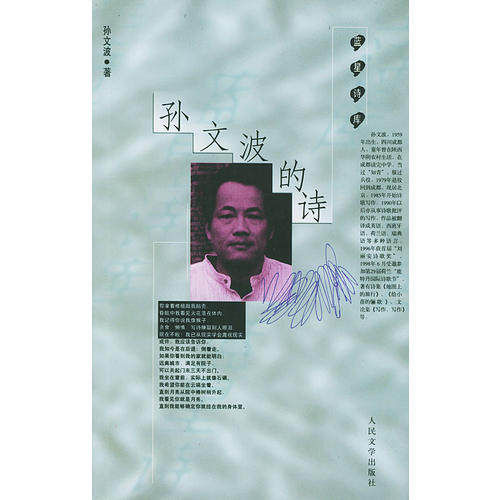 孙文波●著
蓝星诗库
孙文波的诗
孙文波，1959
年出生，四川成都
人，童年曾在陕西
华阴农村生活，在
成都读完中学，当
过“知青”，服过
兵役，1979年退役
回到成都，现居北
京。1985年开始诗
歌写作，1990年以
后亦从事诗歌批评
的写作。作品被翻
译成英语、西班牙
语、荷兰语、瑞典
语等多种语言。
1996年获首届“刘
丽安诗歌奖”，
1998年6月受邀参
加第29届荷兰“鹿
特丹国际诗歌节”。
著有诗集《地图上
的旅行》、《给小
蓓的俪歌》、文
论集《写作、写作》
等。
现在不啦！我已从现实学会蔑视现实
或许，我应该告诉你，
我如今是在后退；倒着走。
如果你看到我的家就能明白：
远离城市，满足有院子，
可以关起门来三天不出门。
我坐在窗前，实际上就像石碾。
我希望你能在云端坐着，
直到月亮从院中椿树梢升起，
我看见你就是月亮，
直到我能够确定你就挂在我的身体里。
人民文学出版社